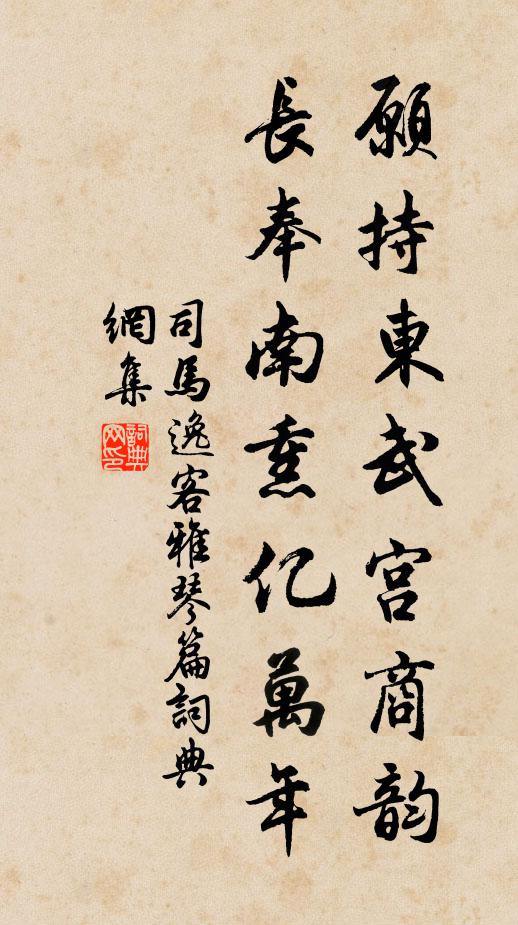 願持東武宫商韵
長奉南熏亿萬年
司馬逸客雅琴篇詞典
網集
詞典
网印